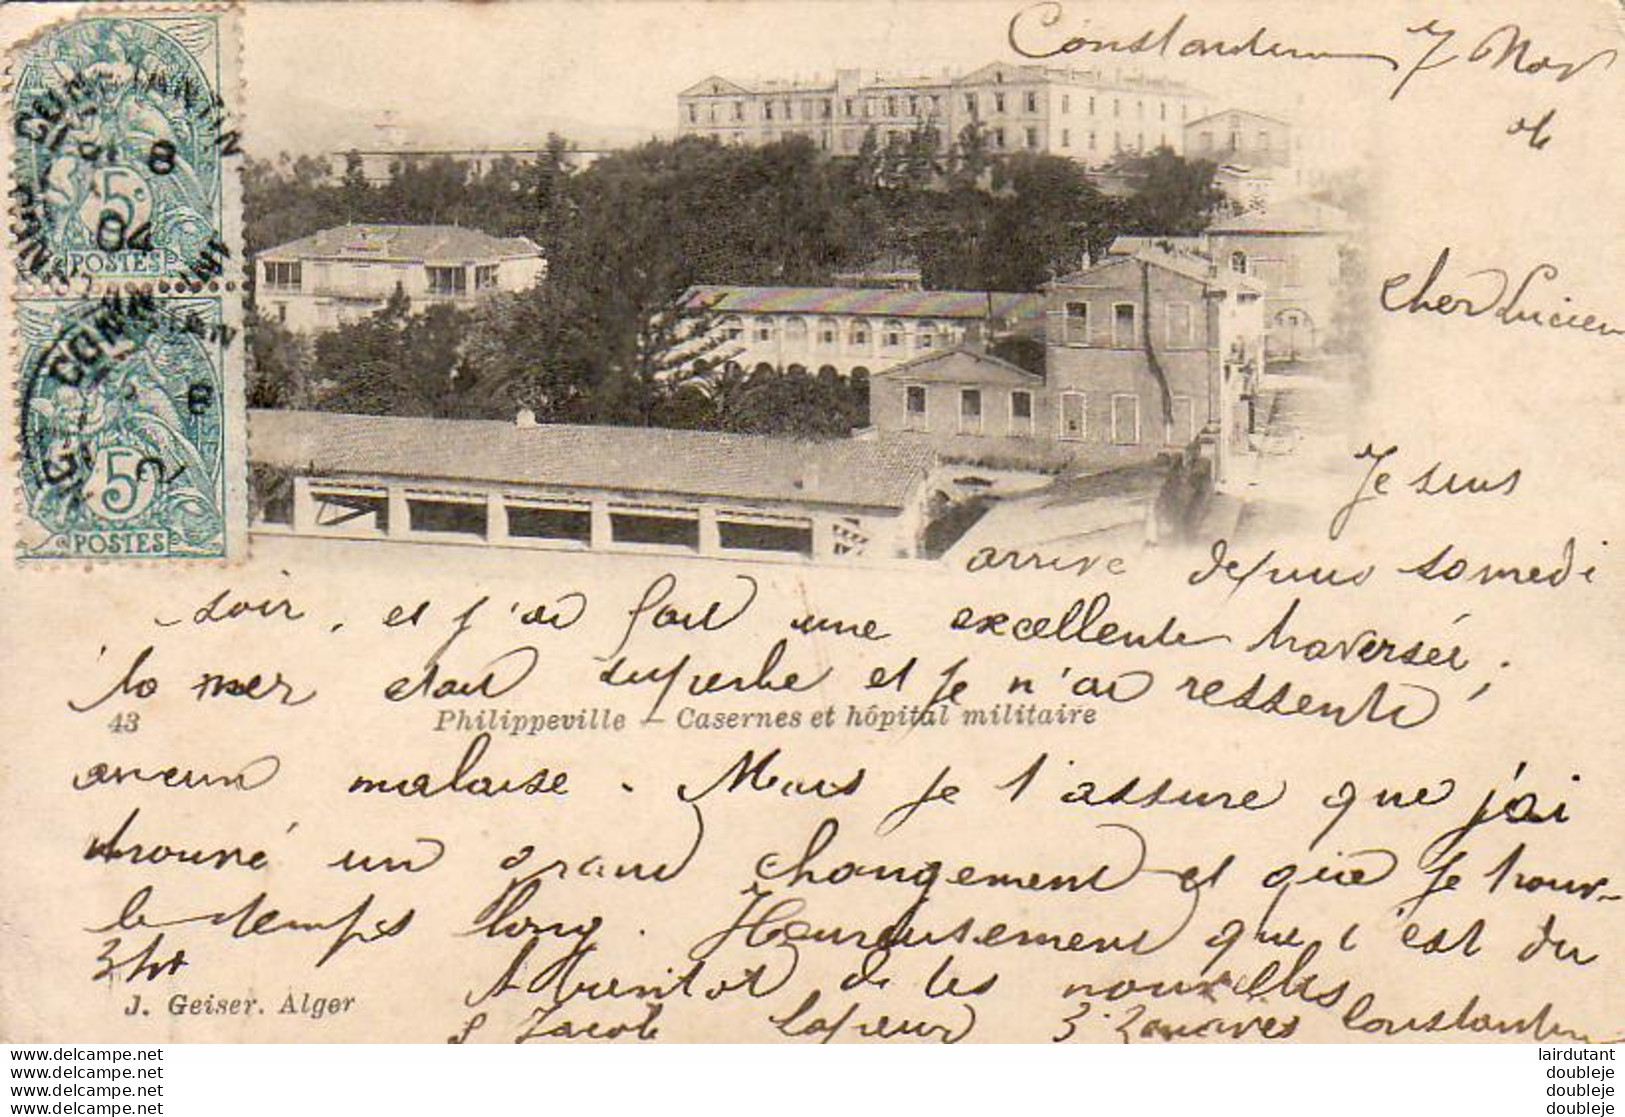 Constantine 7 Nov
04
CONSTANTINE
8
04
5
POSTES
CONSTANTINE
5
POSTES
cher Lucien
Je suis
arrivé depuis samedi
soir, et j'ai fait une excellente traversée,
la mer etait superbe et je n'ai ressenti
43 Philippeville — Casernes et hôpital militaire
aucun malaise. Mais je t'assure que j'ai
trouvé un grand changement et que je trouv-
le temps long. Heureusement que c'est du
A bientot de tes nouvelles
J. Geiser. Alger
Jacob 3 Zouaves Constantine
delcampe.net
delcampe.net
delcampe.net
delcampe.net
lairdutant
doubleje
doubleje
doubleje